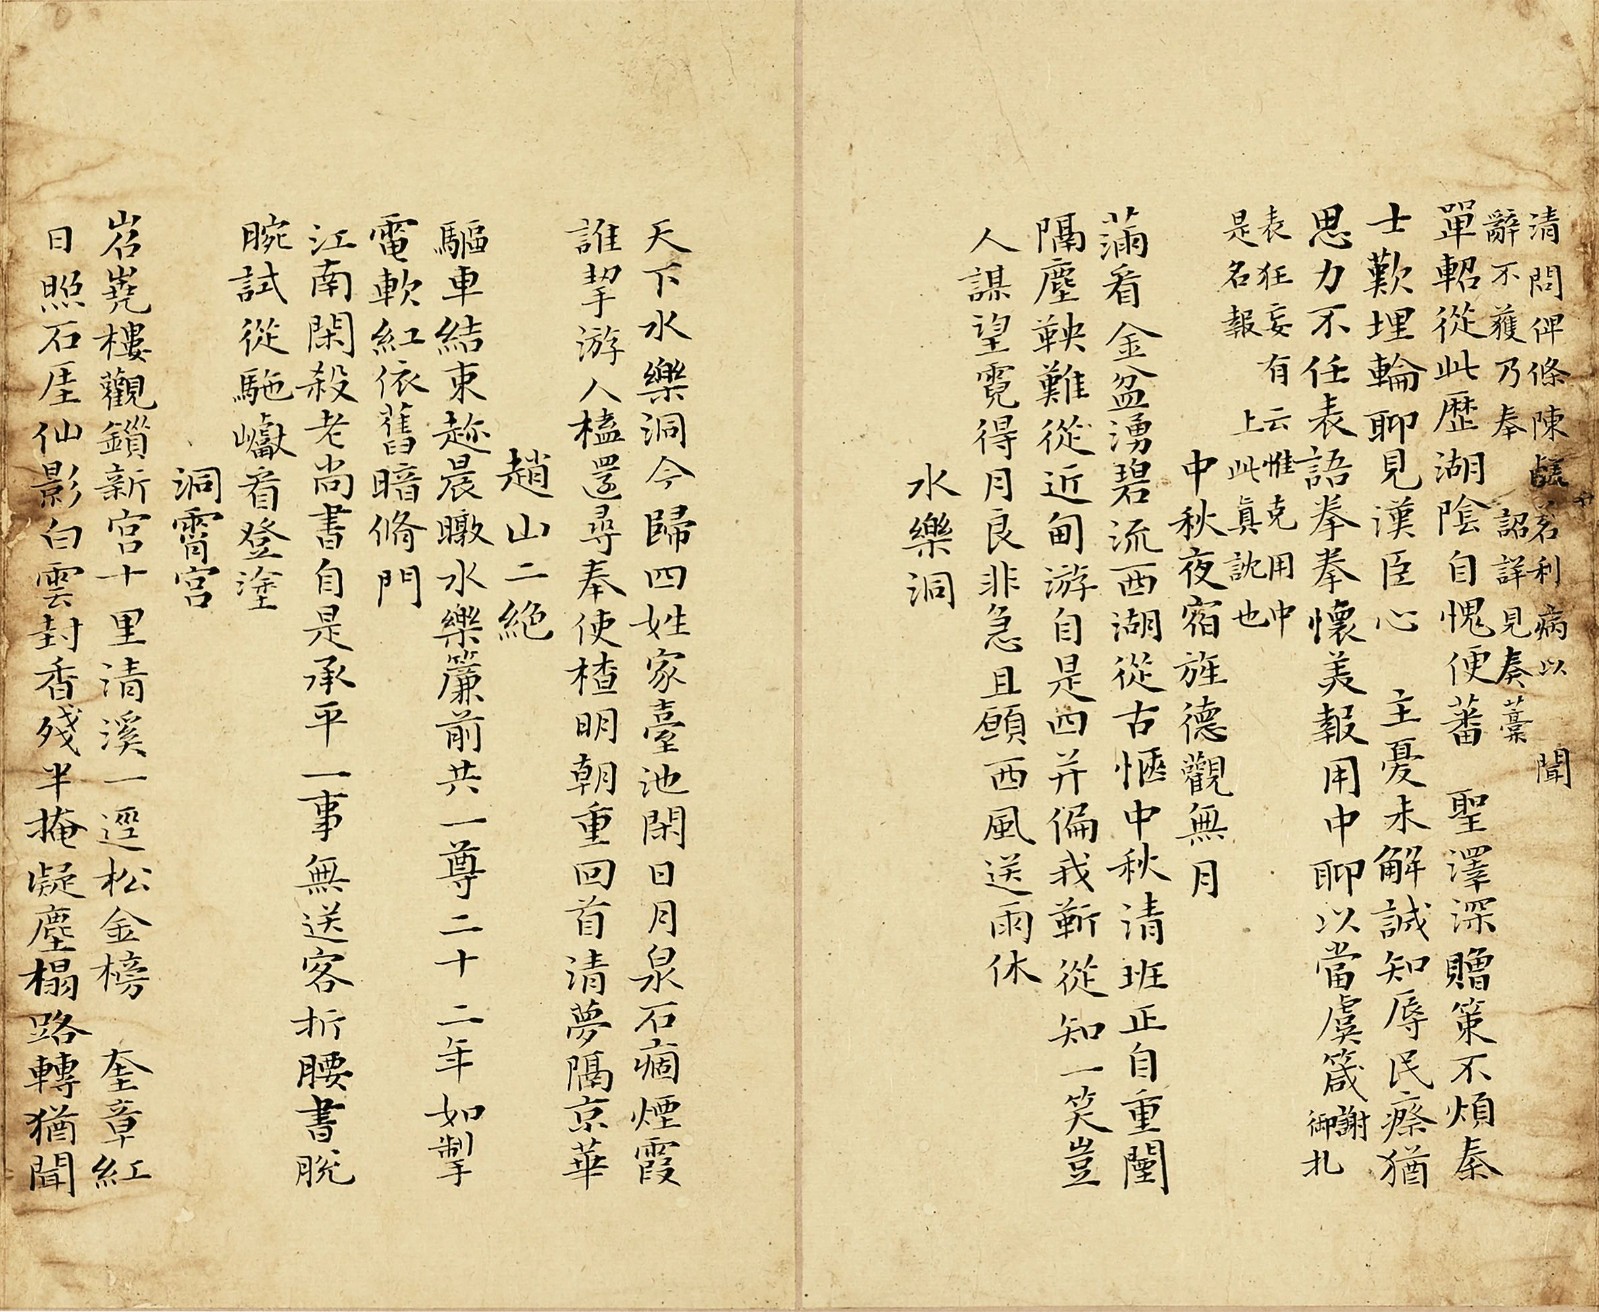 清問俾條陳鹺茗利病以　聞
辭不獲乃奉　詔詳見奏藁
單軺從此歴湖陰自愧便蕃　聖澤深贈策不煩秦
士歎埋輪聊見漢臣心　主憂未解誠知辱民瘵猶
思力不任表語拳拳懷美報用中聊以當虞箴謝御札
表狂妄有云惟克用中
是名報　上此真訧也
中秋夜宿旌德觀無月
滿看金盆湧碧流西湖從古愜中秋清班正自重闉
隔塵鞅難從近甸游自是四并偏我靳從知一笑豈
人謀望霓得月良非急且願西風送雨休
水樂洞
天下水樂洞今歸四姓家臺池閑日月泉石痼煙霞
誰挈游人榼還尋奉使楂明朝重回首清夢隔京華
趙山二絶
驅車結束趂晨暾水樂簾前共一尊二十二年如掣
電軟紅依舊暗脩門
江南閑殺老尚書自是承平一事無送客折腰書脫
腕試從馳巘看登塗
洞霄宮
岧嶤樓觀鎻新宮十里清溪一逕松金榜　奎章紅
日照石厓仙影白雲封香殘半掩凝塵榻路轉猶聞